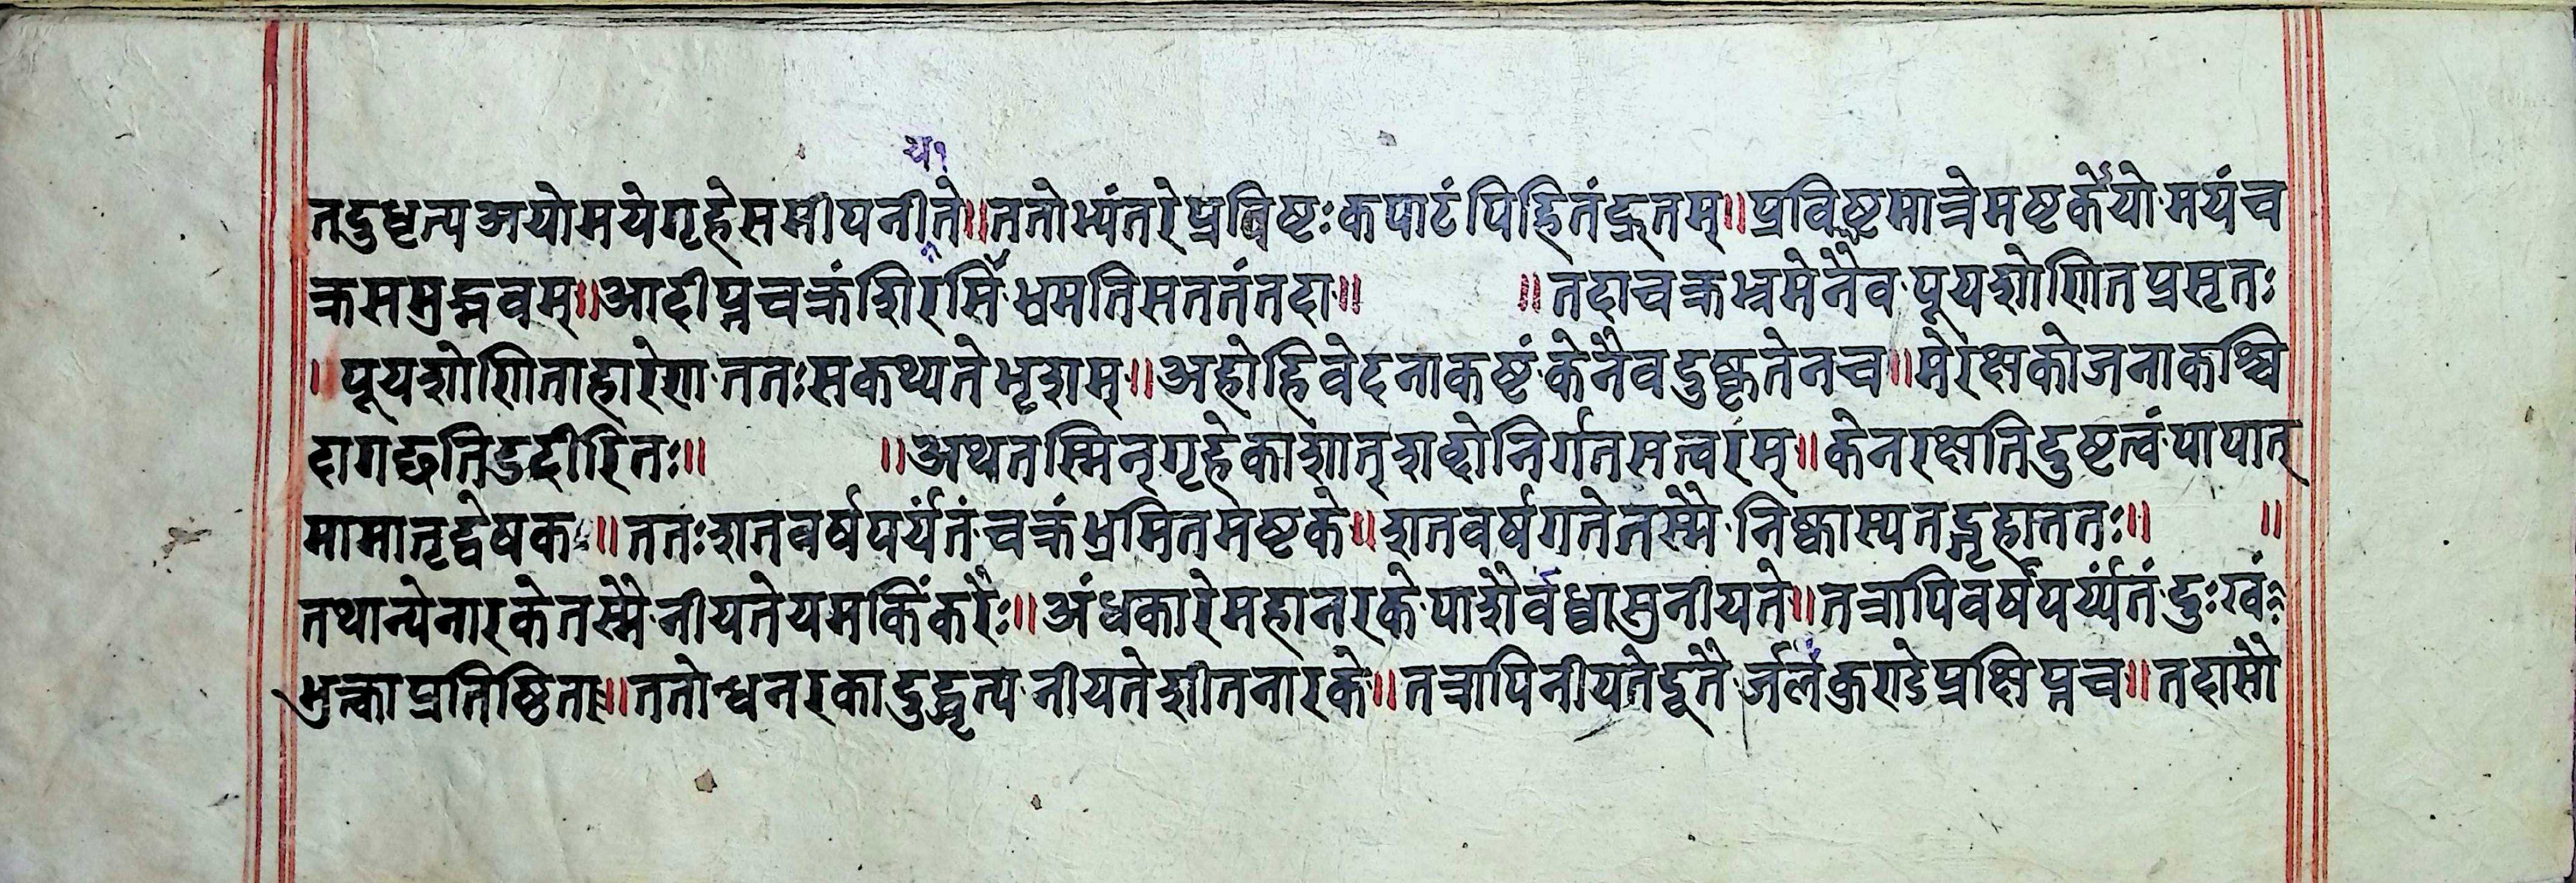 य१
तदुधृत्य अयोमये गृहे समीपनीते॥ततोभ्यंतरे प्रविष्टः कपाटं पिहितं द्रुतम्॥प्रविष्टमात्रेमष्टकेयो मयं च
क्र समुद्भवम्॥आदीप्तचक्रं शिरसि ध्रमति सततं तदा॥ ॥तदाचक्रभ्रमेनैव पूयशोणित प्रसृतः
॥पूयशोणिताहारेण ततः स कथ्यते भृशम्॥अहो हि वेदना कष्टं केनैव दुष्कृतेन च॥मे रक्षको जना कश्चि
दागछति उदीरितः॥ ॥अथ तस्मिन् गृहेकाशात् शब्दो निर्गत सत्वरम्॥केन रक्षति दुष्टत्वं पापात्
मा मातृद्वेषक॥ततः शतवर्षपर्यंतं चक्रं भ्रमित मष्टके॥शतवर्षगते तस्मै निष्कास्य तद्गृहात्ततः॥ ॥
तथान्ये नारके तस्मै नीयते यमकिंकरैः॥अंधकारे महानरके पाशैर्वध्वा सुनीयते॥तत्रापि वर्षपर्य्यंतं दुःखं
भुक्त्वा प्रतिष्ठिता॥ततोन्धनरकादुद्धृत्य नीयते शीतनारके॥तत्रापि नीयते दूतै र्जलकुण्डे प्रक्षिप्त च॥तदासौ